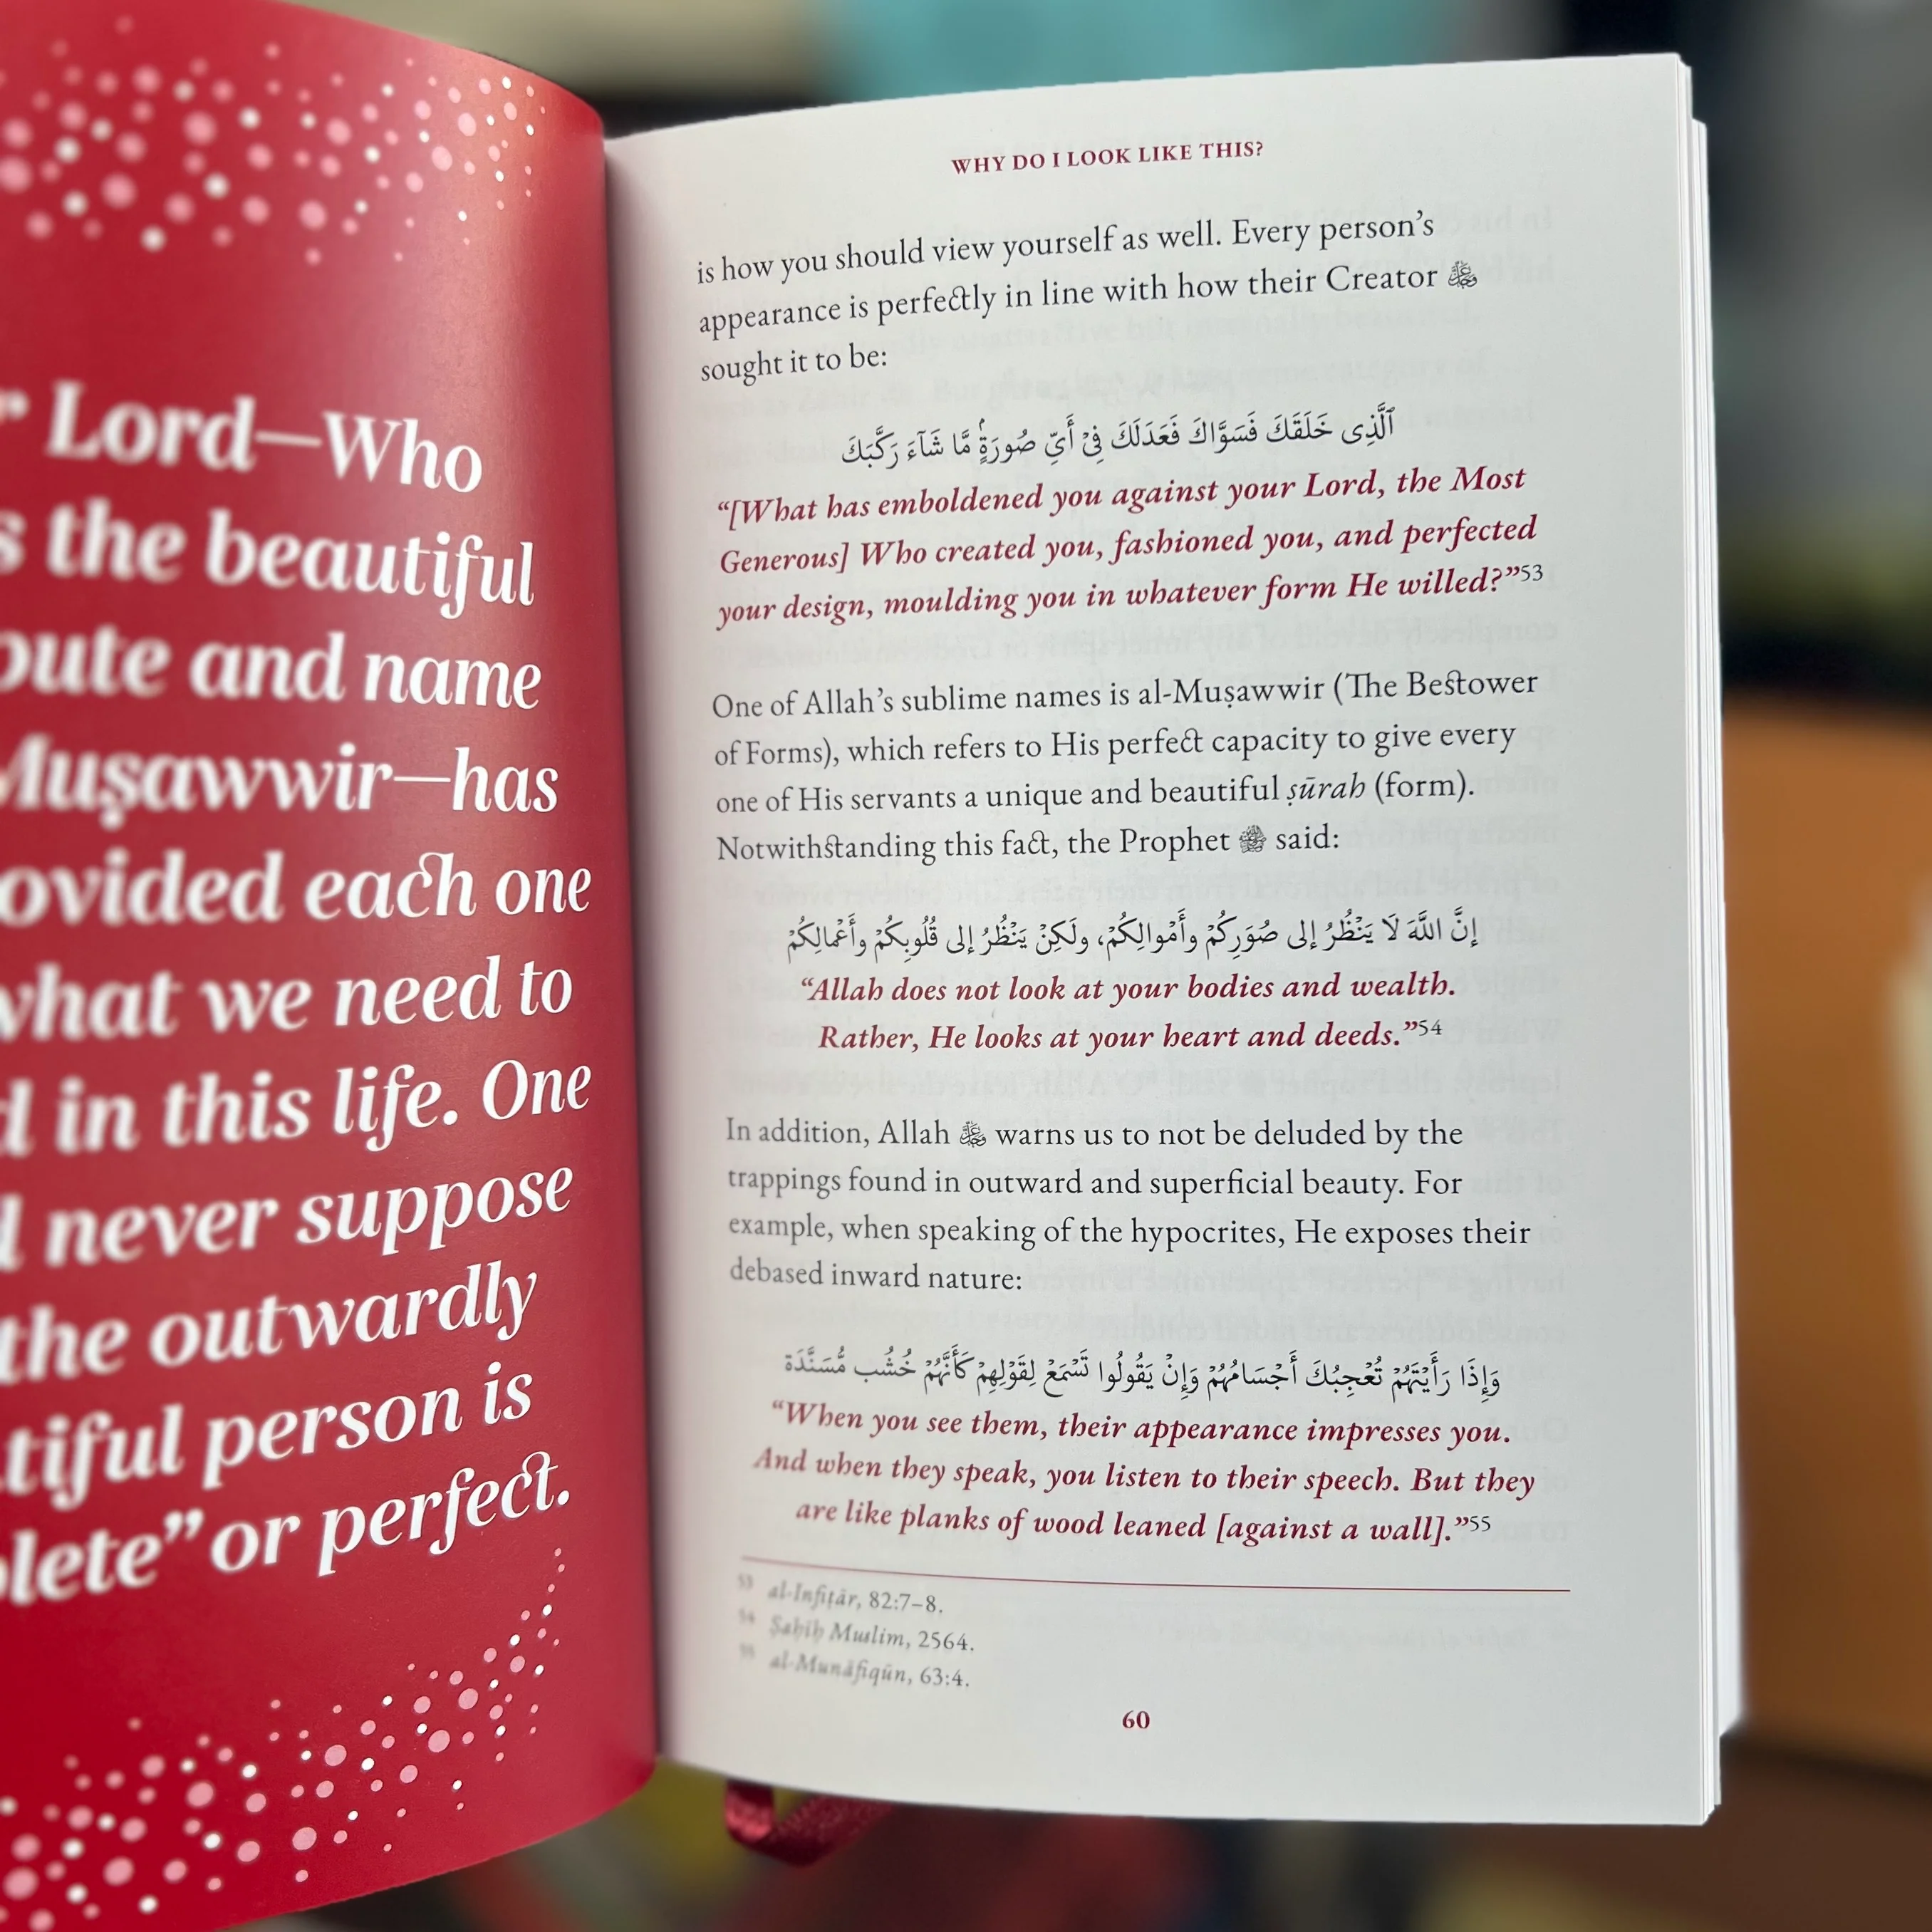 Lord—Who
the beautiful
and name
Muṣawwir—has
each one
what we need to
in this life. One
never suppose
the outwardly
person is
or perfect.
WHY DO I LOOK LIKE THIS?
is how you should view yourself as well. Every person's
appearance is perfectly in line with how their Creator ﷻ
sought it to be:
ٱلَّذِى خَلَقَكَ فَسَوَّاكَ فَعَدَلَكَ فِىْ أَىِّ صُورَةٍۢ مَّا شَآءَ رَكَّبَكَ
“[What has emboldened you against your Lord, the Most
Generous] Who created you, fashioned you, and perfected
your design, moulding you in whatever form He willed?”53
One of Allah's sublime names is al-Muṣawwir (The Bestower
of Forms), which refers to His perfect capacity to give every
one of His servants a unique and beautiful ṣūrah (form).
Notwithstanding this fact, the Prophet ﷺ said:
إِنَّ اللَّهَ لَا يَنْظُرُ إلى صُوَرِكُمْ وأَمْوالِكُمْ، ولَكِنْ يَنْظُرُ إلى قُلُوبِكُمْ وأَعْمالِكُمْ
“Allah does not look at your bodies and wealth.
Rather, He looks at your heart and deeds.”54
In addition, Allah ﷻ warns us to not be deluded by the
trappings found in outward and superficial beauty. For
example, when speaking of the hypocrites, He exposes their
debased inward nature:
وَإِذَا رَأَيْتَهُمْ تُعْجِبُكَ أَجْسَامُهُمْ وَإِنْ يَقُولُوا تَسْمَعْ لِقَوْلِهِمْ كَأَنَّهُمْ خُشُب مُّسَنَّدَة
“When you see them, their appearance impresses you.
And when they speak, you listen to their speech. But they
are like planks of wood leaned [against a wall].”55
53 al-Infiṭār, 82:7–8.
54 Ṣaḥīḥ Muslim, 2564.
55 al-Munāfiqūn, 63:4.
60